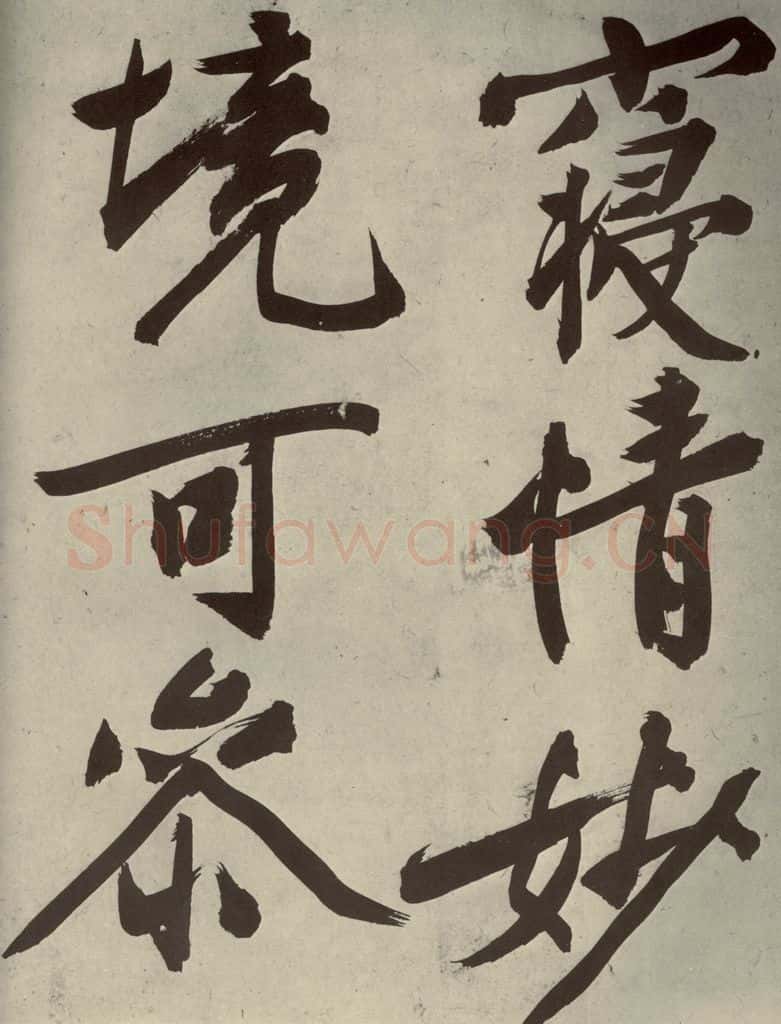 寢情妙
境可參
Shufawang.CN